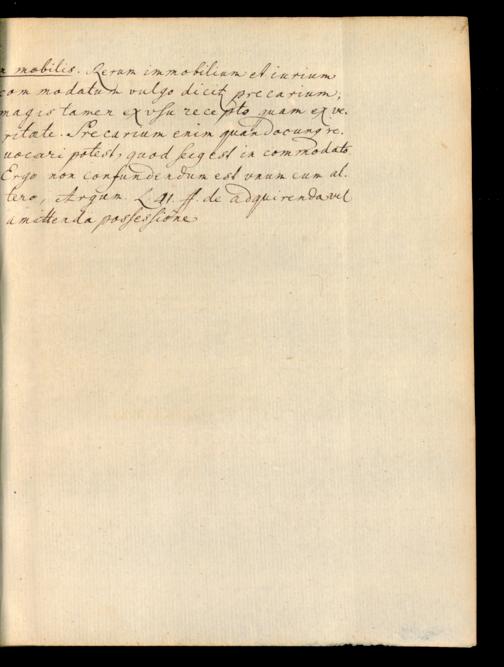 mobilis. Rerum immobilium et iurium
commodatum vulgo dicit precarium,
magis tamen ex vsu recepto quam ex ve.
ritate. Precarium enim quandocunq re.
uocari potest, quod secq est in commodato
Ergo non confundendum est vnum cum al.
tero, Argum. L. 41. ff. de adquirenda vel
amittenda possessione